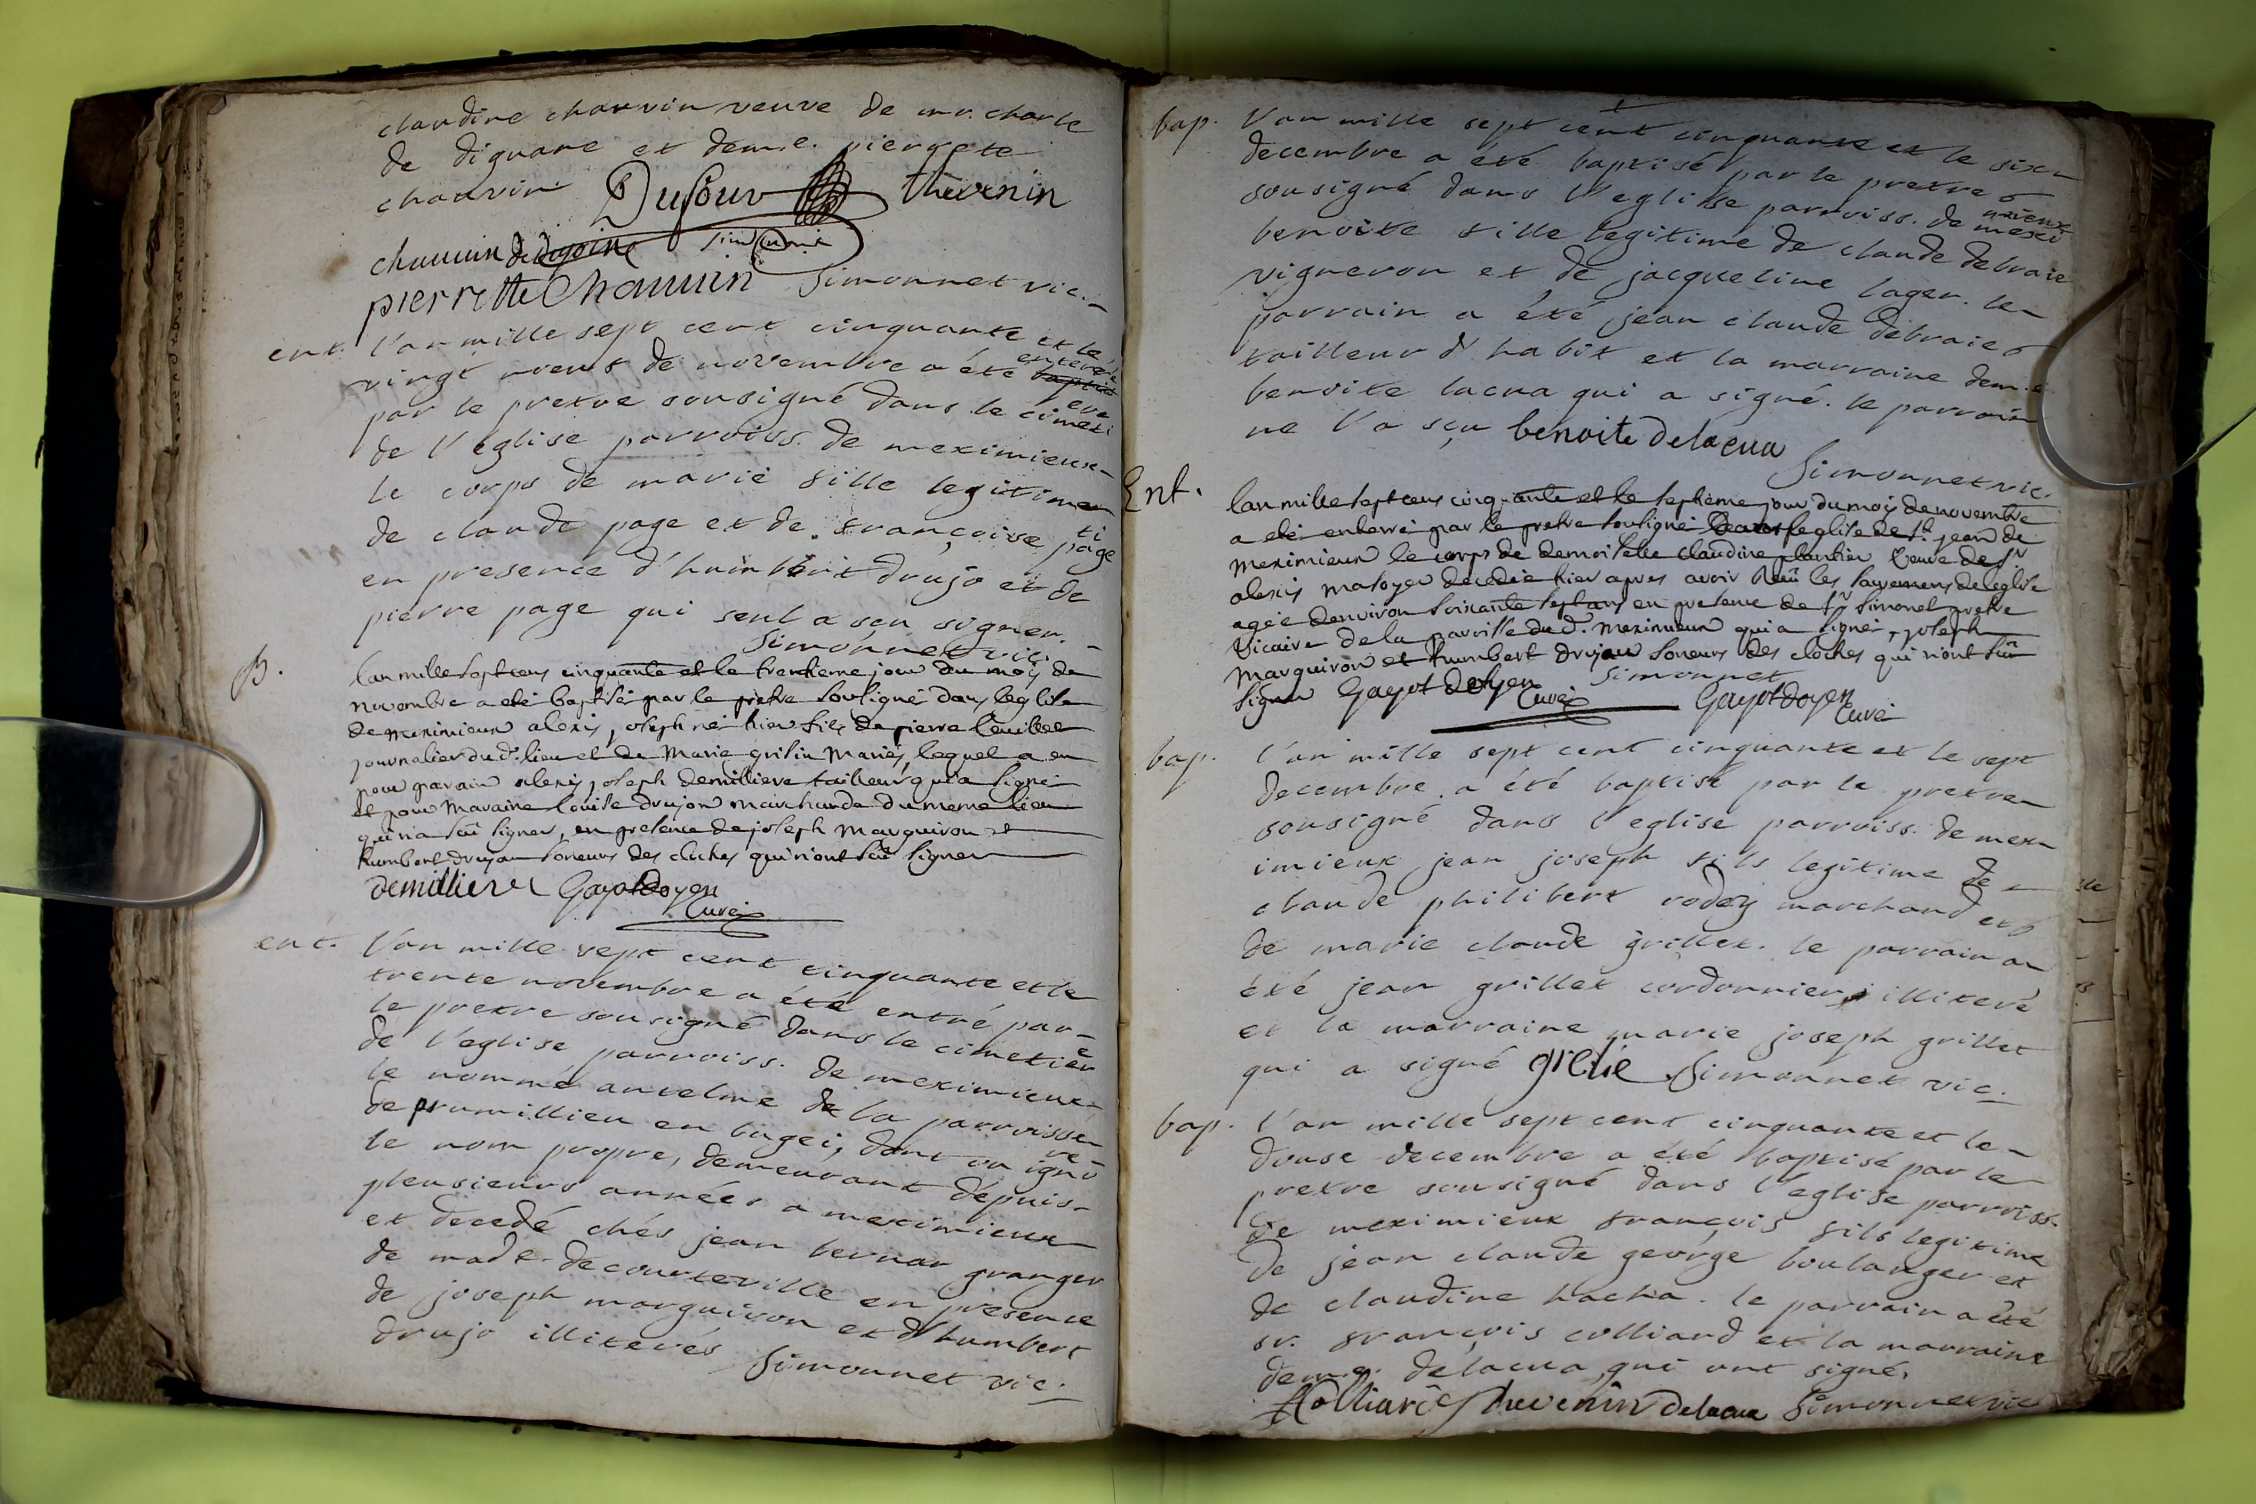 claudine chauvin veuve de mr. charle
de diguare et dem.e. pierrete
chauvin Dufour thevenin
chauuin de
pierrette Chauuin Simonnet vic.
ent. l'an mille sept cent cinquante et le
vingt neuf de novembre a été baptisé enterré
par le pretre sousigné dans le cimeti ere
de l'eglise parroiss. de meximieux
le corps de marie fille legitime
de claude page et de françoise page
en presence d'humbert drujo et de
pierre page qui seul a sçu signer.
Simonnet vic.
B. lan mille sept cens cinquante et le trentieme jour du mois de
novembre a eté baptisé par le prêtre soussigné dans leglise
de meximieux alexis joseph né hier fils de pierre
journalier du d. lieu et de Marie grisin Mariés, lequel a eu
pour parain alexis joseph demilliere tailleur qui a signé
et pour Maraine louise drujon marchande du meme lieu
qui n'a sçû signer, en presence de joseph Marguiron et
humbert drujon soneurs des cloches qui n'ont sçû signer
demilliere Gayot Doyen
Curé
ent. l'an mille sept cent cinquante et le
trente novembre a été entré par
le pretre sousigné dans le cimetier e
de l'eglise parroiss. de meximieux
le nommé anselme de la parroisse
de prumillieu en bugei, dont on igno re
le nom propre, demeurant depuis
pleusieurs années a meximieux
et decedé chés jean bernar granger
de made. decourteville en presence
de joseph marguiron et d'humbert
drujo illiterés Simonnet vic.
bap. l'an mille sept cent cinquante et le six
decembre a été baptisé par le pretre
sousigné dans l'eglise parroiss. de mexi mieux
benoite fille legitime de claude debraie
vigneron et de jacqueline lager. le
parrain a été jean claude debraie
tailleur d'habit et la marraine dem.e
benoite lacua qui a signé. le parrain
ne l'a sçu benoite delacua
Simonnet vic.
Ent. lan mille sept cens cinquante et le septieme jour du mois de novembre
a eté enterré par le pretre soussigné dans leglise de st. jean de
meximieux le corps de demoiselle claudine plantier veuve de sr
alexis masoyer decedée hier apres avoir reçû les sacremens de leglise
agée denviron soixante sept ans en presence de sr simonet pretre
vicaire de la parroisse du d. meximieux qui a signé, joseph
marguiron et humbert drujon soneurs des cloches qui n'ont sçû
signer Gayot doyen Simonnet Gayot doyen
Curé Curé
bap. l'an mille sept cent cinquante et le sept
decembre a été baptisé par le pretre
sousigné dans l'eglise parroiss. de mex
imieux jean joseph fils legitime de
claude philibert rodez marchand et
de marie claude grillet. le parrain a
été jean grillet cordonnier illiteré
et la marraine marie joseph grillet
qui a signé grelie Simonnet vic.
bap. l'an mille sept cent cinquante et le
douse decembre a été baptisé par le
pretre sousigné dans l'eglise parroiss.
de meximieux françois fils legitime
de jean claude george boulanger et
de claudine hacha. le parrain a été
sr. françois colliard et la marraine
dem.e. delacua qui ont signé.
Colliard thevenin delacua Simonnet vic